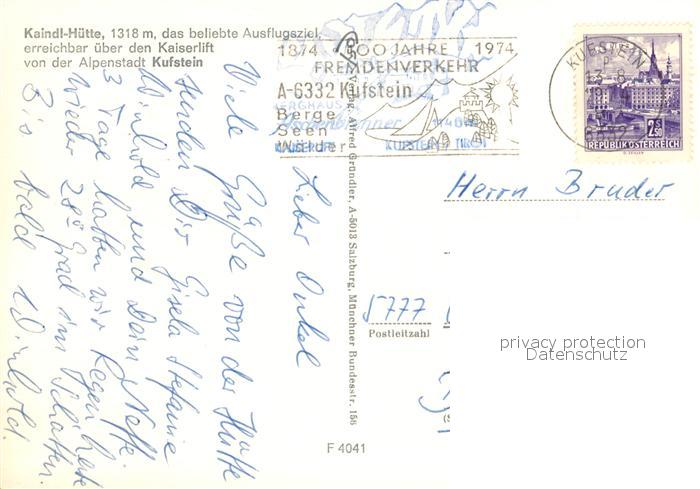 Kaindl-Hütte, 1318 m, das beliebte Ausflugsziel,
erreichbar über den Kaiserlift
von der Alpenstadt Kufstein
1874 100 JAHRE 1974
FREMDENVERKEHR
A-6332 Kufstein
Berge
Seen
Wälder
BERGHAUS
KUFSTEIN TIROL
KUFSTEIN
13.8.
REPUBLIK ÖSTERREICH
Lieber Onkel
Viele Grüße von der Hütte
senden Dir Gisela Stefanie
Winhold und Dein Neffe
3 Tage hatten wir Regen heute
wieder 28° Grad im Schatten.
Bis bald Winhold.
Verlag Alfred Gründler, A-5013 Salzburg, Münchner Bundesstr. 156
Herrn Bruder
5777
Postleitzahl
privacy protection
Datenschutz
F 4041